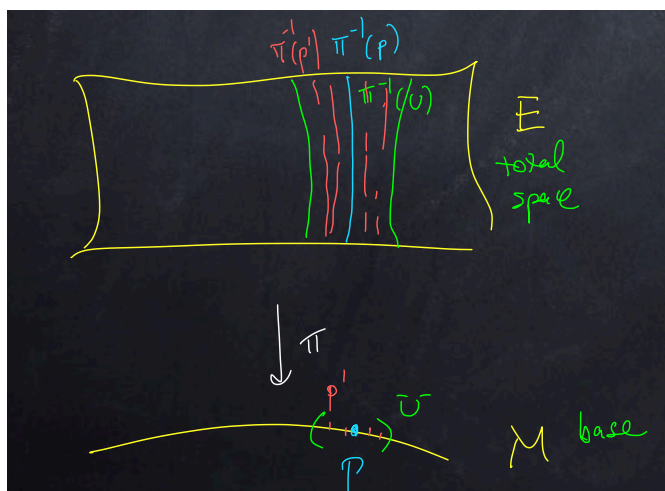 π⁻¹(p') π⁻¹(p)
π⁻¹(U)
E
total
space
π
p'
U
M base
P